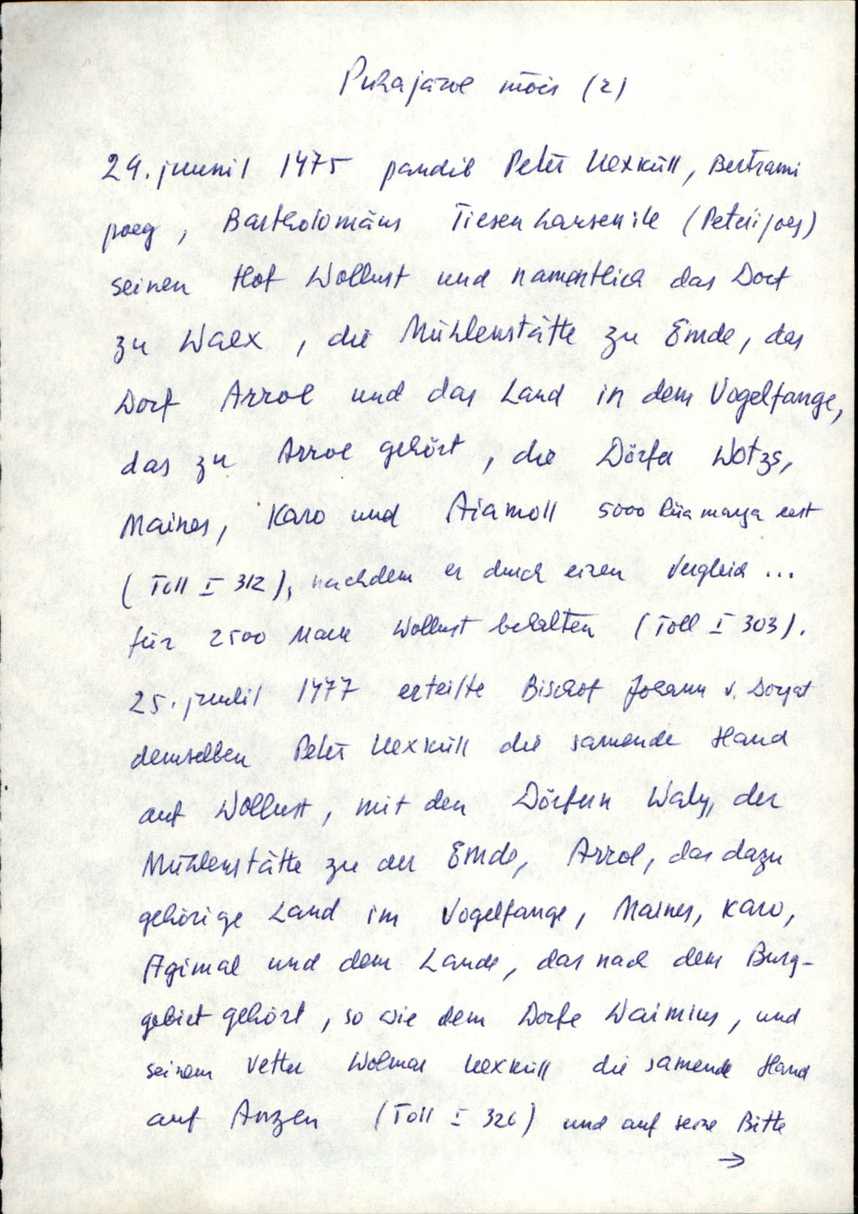 Pühajärve mõis (2)
29. juunil 1475 pandib Peter Uexküll, Bertrami
poeg, Bartholomäus Tiesenhausenile (Peteri poeg)
seinen Hof Wollust und namentlich das Dorf
zu Walx, die Mühlenstätte zu Emde, das
Dorf Arrol und das Land in dem Vogelfange,
das zu Arrol gehört, die Dörfer Wotzs,
Maines, Karo und Aiamoll 5000 Riia marga eest
(Toll I 312), nachdem er durch einen Vergleich ...
für 2500 Mark Wollust behalten (Toll I 303).
25. juulil 1477 erteilte Bischof Johann v. Dorpat
demselben Peter Uexküll die samende Hand
auf Wollust, mit den Dörfern Walx, der
Mühlenstätte zu der Emde, Arrol, das dazu
gehörige Land im Vogelfange, Maines, Karo,
Agimal und dem Lande, das nach dem Burg-
gebiet gehört, so wie dem Dorfe Waimius, und
seinem Vetter Wolmar Uexküll die samende Hand
auf Anzen (Toll I 326) und auf seine Bitte
→